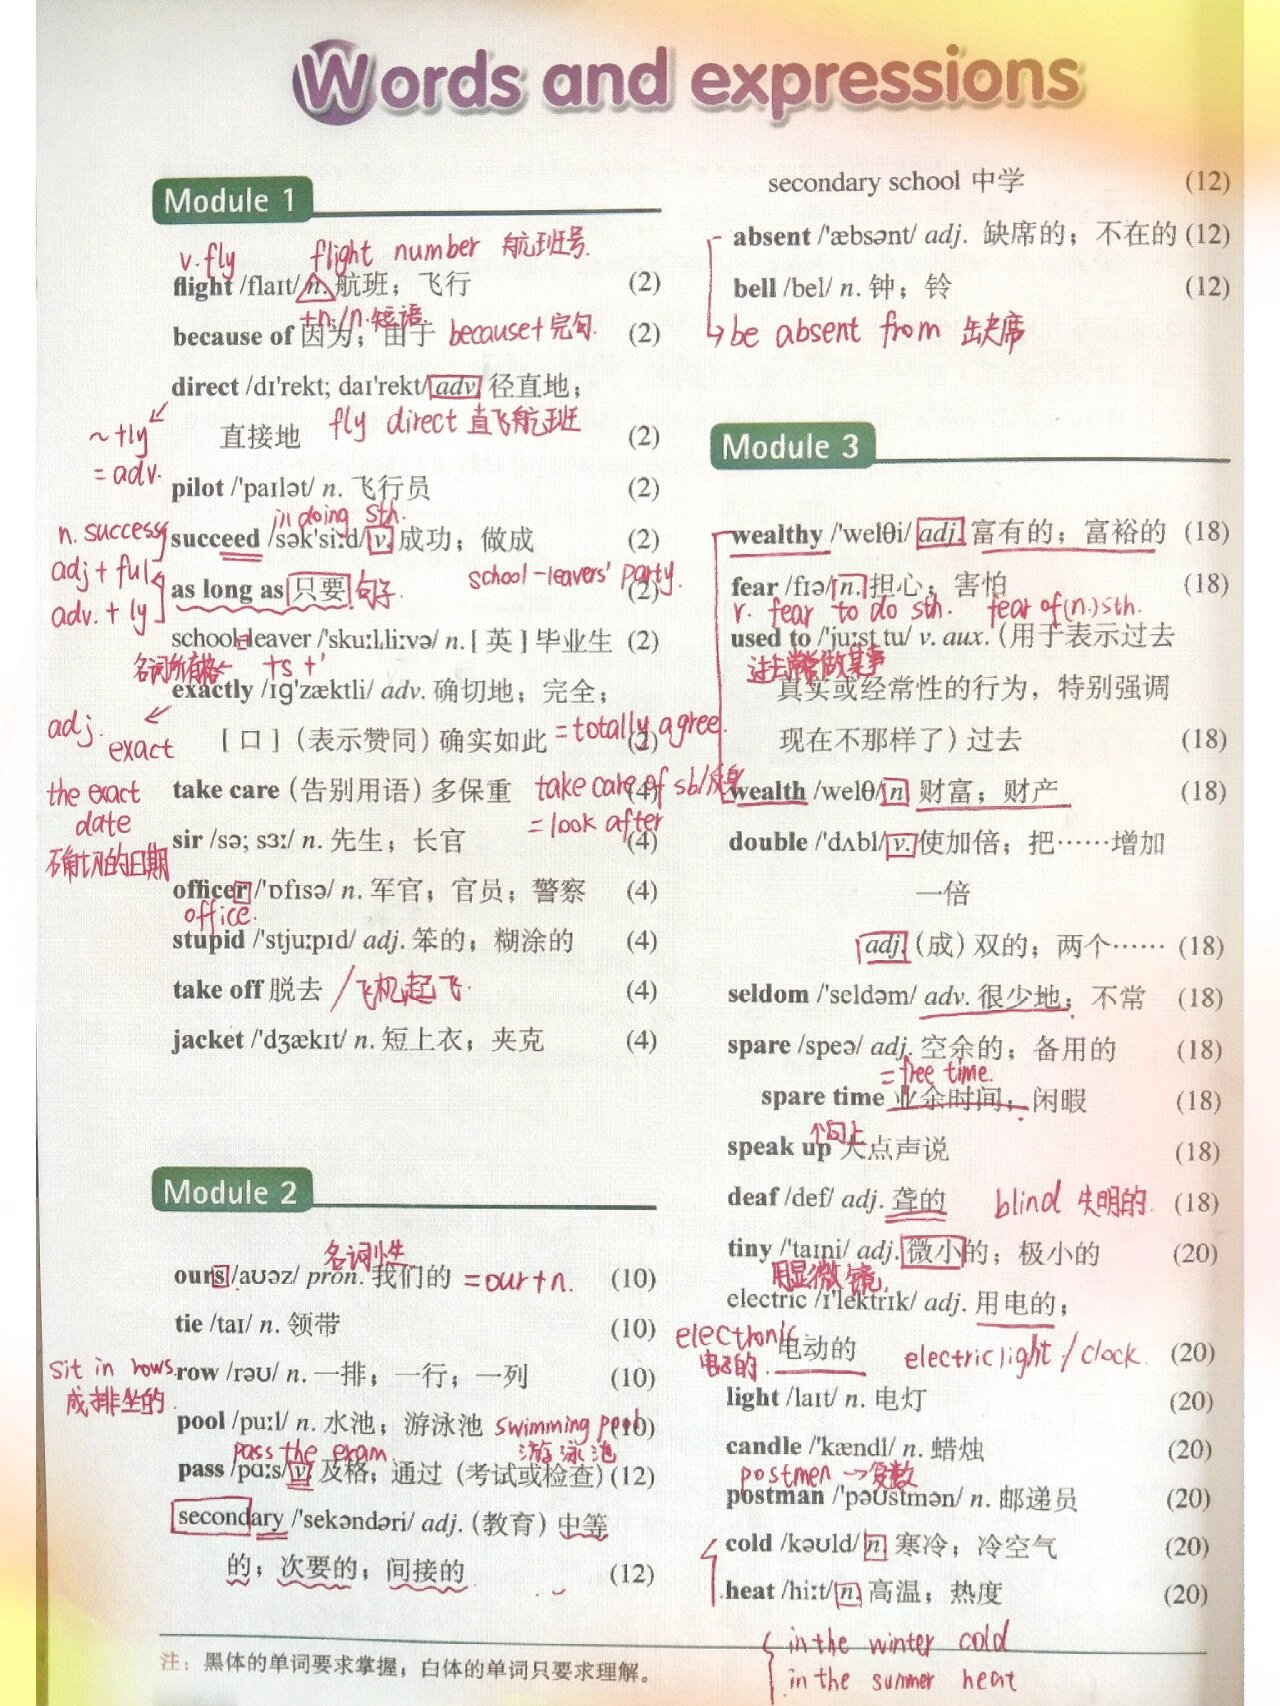 Words and expressions
Module 1
v. fly flight number 航班号.
flight /flaɪt/ n. 航班；飞行 (2)
+n./n.短语
because of 因为；由于 because+完句. (2)
direct /dɪ'rekt; daɪ'rekt/ adv. 径直地；
直接地 fly direct 直飞航班 (2)
~+ly
= adv.
pilot /'paɪlət/ n. 飞行员 (2)
in doing sth.
succeed /sək'siːd/ v. 成功；做成 (2)
n. success
adj + ful
adv. + ly
school-leavers' party.
as long as 只要 句子. (2)
school-leaver /'skuːl,liːvə/ n. [ 英 ] 毕业生 (2)
名词所有格 ← +s +'
exactly /ɪg'zæktli/ adv. 确切地；完全；
[ 口 ]（表示赞同）确实如此 = totally agree. (2)
adj. exact
the exact
date
不确切的日期
take care（告别用语）多保重 take care of sb/ (4)
= look after
sir /sə; sɜː/ n. 先生；长官 (4)
officer /'ɒfɪsə/ n. 军官；官员；警察 (4)
office.
stupid /'stjuːpɪd/ adj. 笨的；糊涂的 (4)
take off 脱去 /飞机起飞. (4)
jacket /'dʒækɪt/ n. 短上衣；夹克 (4)
Module 2
名词性
ours /aʊəz/ pron. 我们的 = our+n. (10)
tie /taɪ/ n. 领带 (10)
sit in rows
成排坐的.
row /rəʊ/ n. 一排；一行；一列 (10)
pool /puːl/ n. 水池；游泳池 swimming pool (10)
游泳池
pass the exam
pass /pɑːs/ v. 及格；通过（考试或检查）(12)
secondary /'sekəndəri/ adj.（教育）中等
的；次要的；间接的 (12)
secondary school 中学 (12)
absent /'æbsənt/ adj. 缺席的；不在的 (12)
bell /bel/ n. 钟；铃 (12)
be absent from 缺席
Module 3
wealthy /'welθi/ adj. 富有的；富裕的 (18)
fear /fɪə/ n. 担心；害怕 (18)
v. fear to do sth. fear of(n.)sth.
used to /'juːst tu/ v. aux.（用于表示过去
过去常常做某事
真实或经常性的行为，特别强调
现在不那样了）过去 (18)
wealth /welθ/ n. 财富；财产 (18)
double /'dʌbl/ v. 使加倍；把……增加
一倍
adj.（成）双的；两个…… (18)
seldom /'seldəm/ adv. 很少地；不常 (18)
spare /speə/ adj. 空余的；备用的 (18)
= free time.
spare time 业余时间；闲暇 (18)
个向上
speak up 大点声说 (18)
deaf /def/ adj. 聋的 blind 失明的. (18)
tiny /'taɪni/ adj. 微小的；极小的 (20)
用显微镜.
electric /ɪ'lektrɪk/ adj. 用电的；
electronic
电子的.
电动的 electric light / clock. (20)
light /laɪt/ n. 电灯 (20)
candle /'kændl/ n. 蜡烛 (20)
postmen → 复数
postman /'pəʊstmən/ n. 邮递员 (20)
cold /kəʊld/ n. 寒冷；冷空气 (20)
heat /hiːt/ n. 高温；热度 (20)
in the winter cold
in the summer heat
注：黑体的单词要求掌握；白体的单词只要求理解。